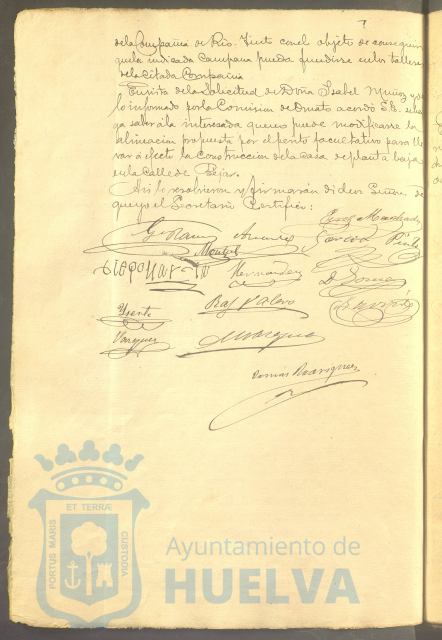 7
de la Compañia de Rio-Tinto con el objeto de conseguir
que la indicada Campana pueda fundirse en los talleres
de la citada Compañia
En vista de la Solicitud de Doña Isabel Muñoz y de
lo informado por la Comision de Ornato acordó S.E. se ha
ga saber á la interesada que no puede modificarse la
alineacion propuesta por el perito facultativo para lle
var á efecto la construccion de la casa de planta baja
en la Calle de Béjar.
Asi lo resolvieron y firmarán dichos Señores de
que yo el Secretario Certifico:
Perez Machado
Garcia
Montiel
Hernandez
D. Gomez
Vicente
Raf Valero
Vazquez
Marquez
Tomas Dominguez
PORTUS MARIS ET TERRAE CUSTODIA
Ayuntamiento de
HUELVA